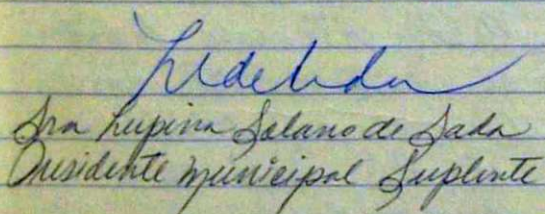 Sra Lupina Solano de Sada
Presidente Municipal Suplente